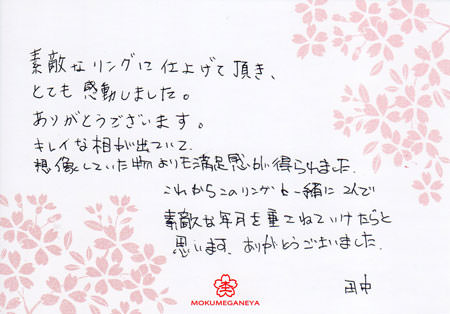 素敵なリングに仕上げて頂き、
とても感動しました。
ありがとうございます。
キレイな相が出ていて、
想像していた物よりも満足感が得られました。
これからこのリングと一緒に2人で
素敵な年月を重ねていけたらと
思います。ありがとうございました。
田中
MOKUMEGANEYA